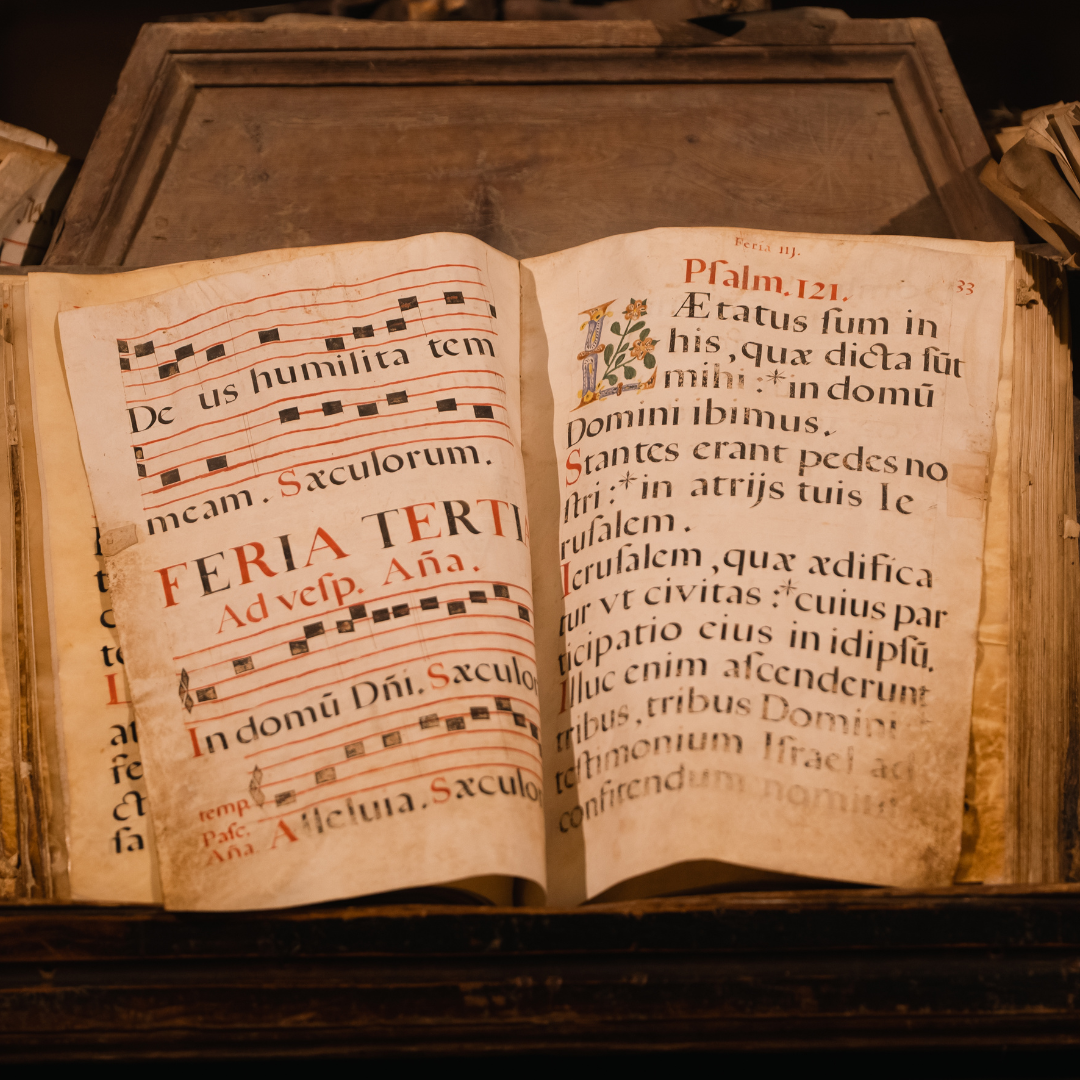 De us humilita tem
meam. Sæculorum.
FERIA TERTI
Ad veſp. Aña.
In domū Dñi. Sæculo
temp.
Paſc.
Aña Alleluia. Sæculo
Feria IIJ.
Pſalm. 121.
33
LÆtatus ſum in
his, quæ dicta ſūt
mihi :* in domū
Domini ibimus.
Stantes erant pedes no
ſtri :* in atrijs tuis Ie
ruſalem.
Ieruſalem, quæ ædifica
tur vt civitas :* cuius par
ticipatio eius in idipſū.
Illuc enim aſcenderunt
tribus, tribus Domini
teſtimonium Iſrael ad
confitendum nomini